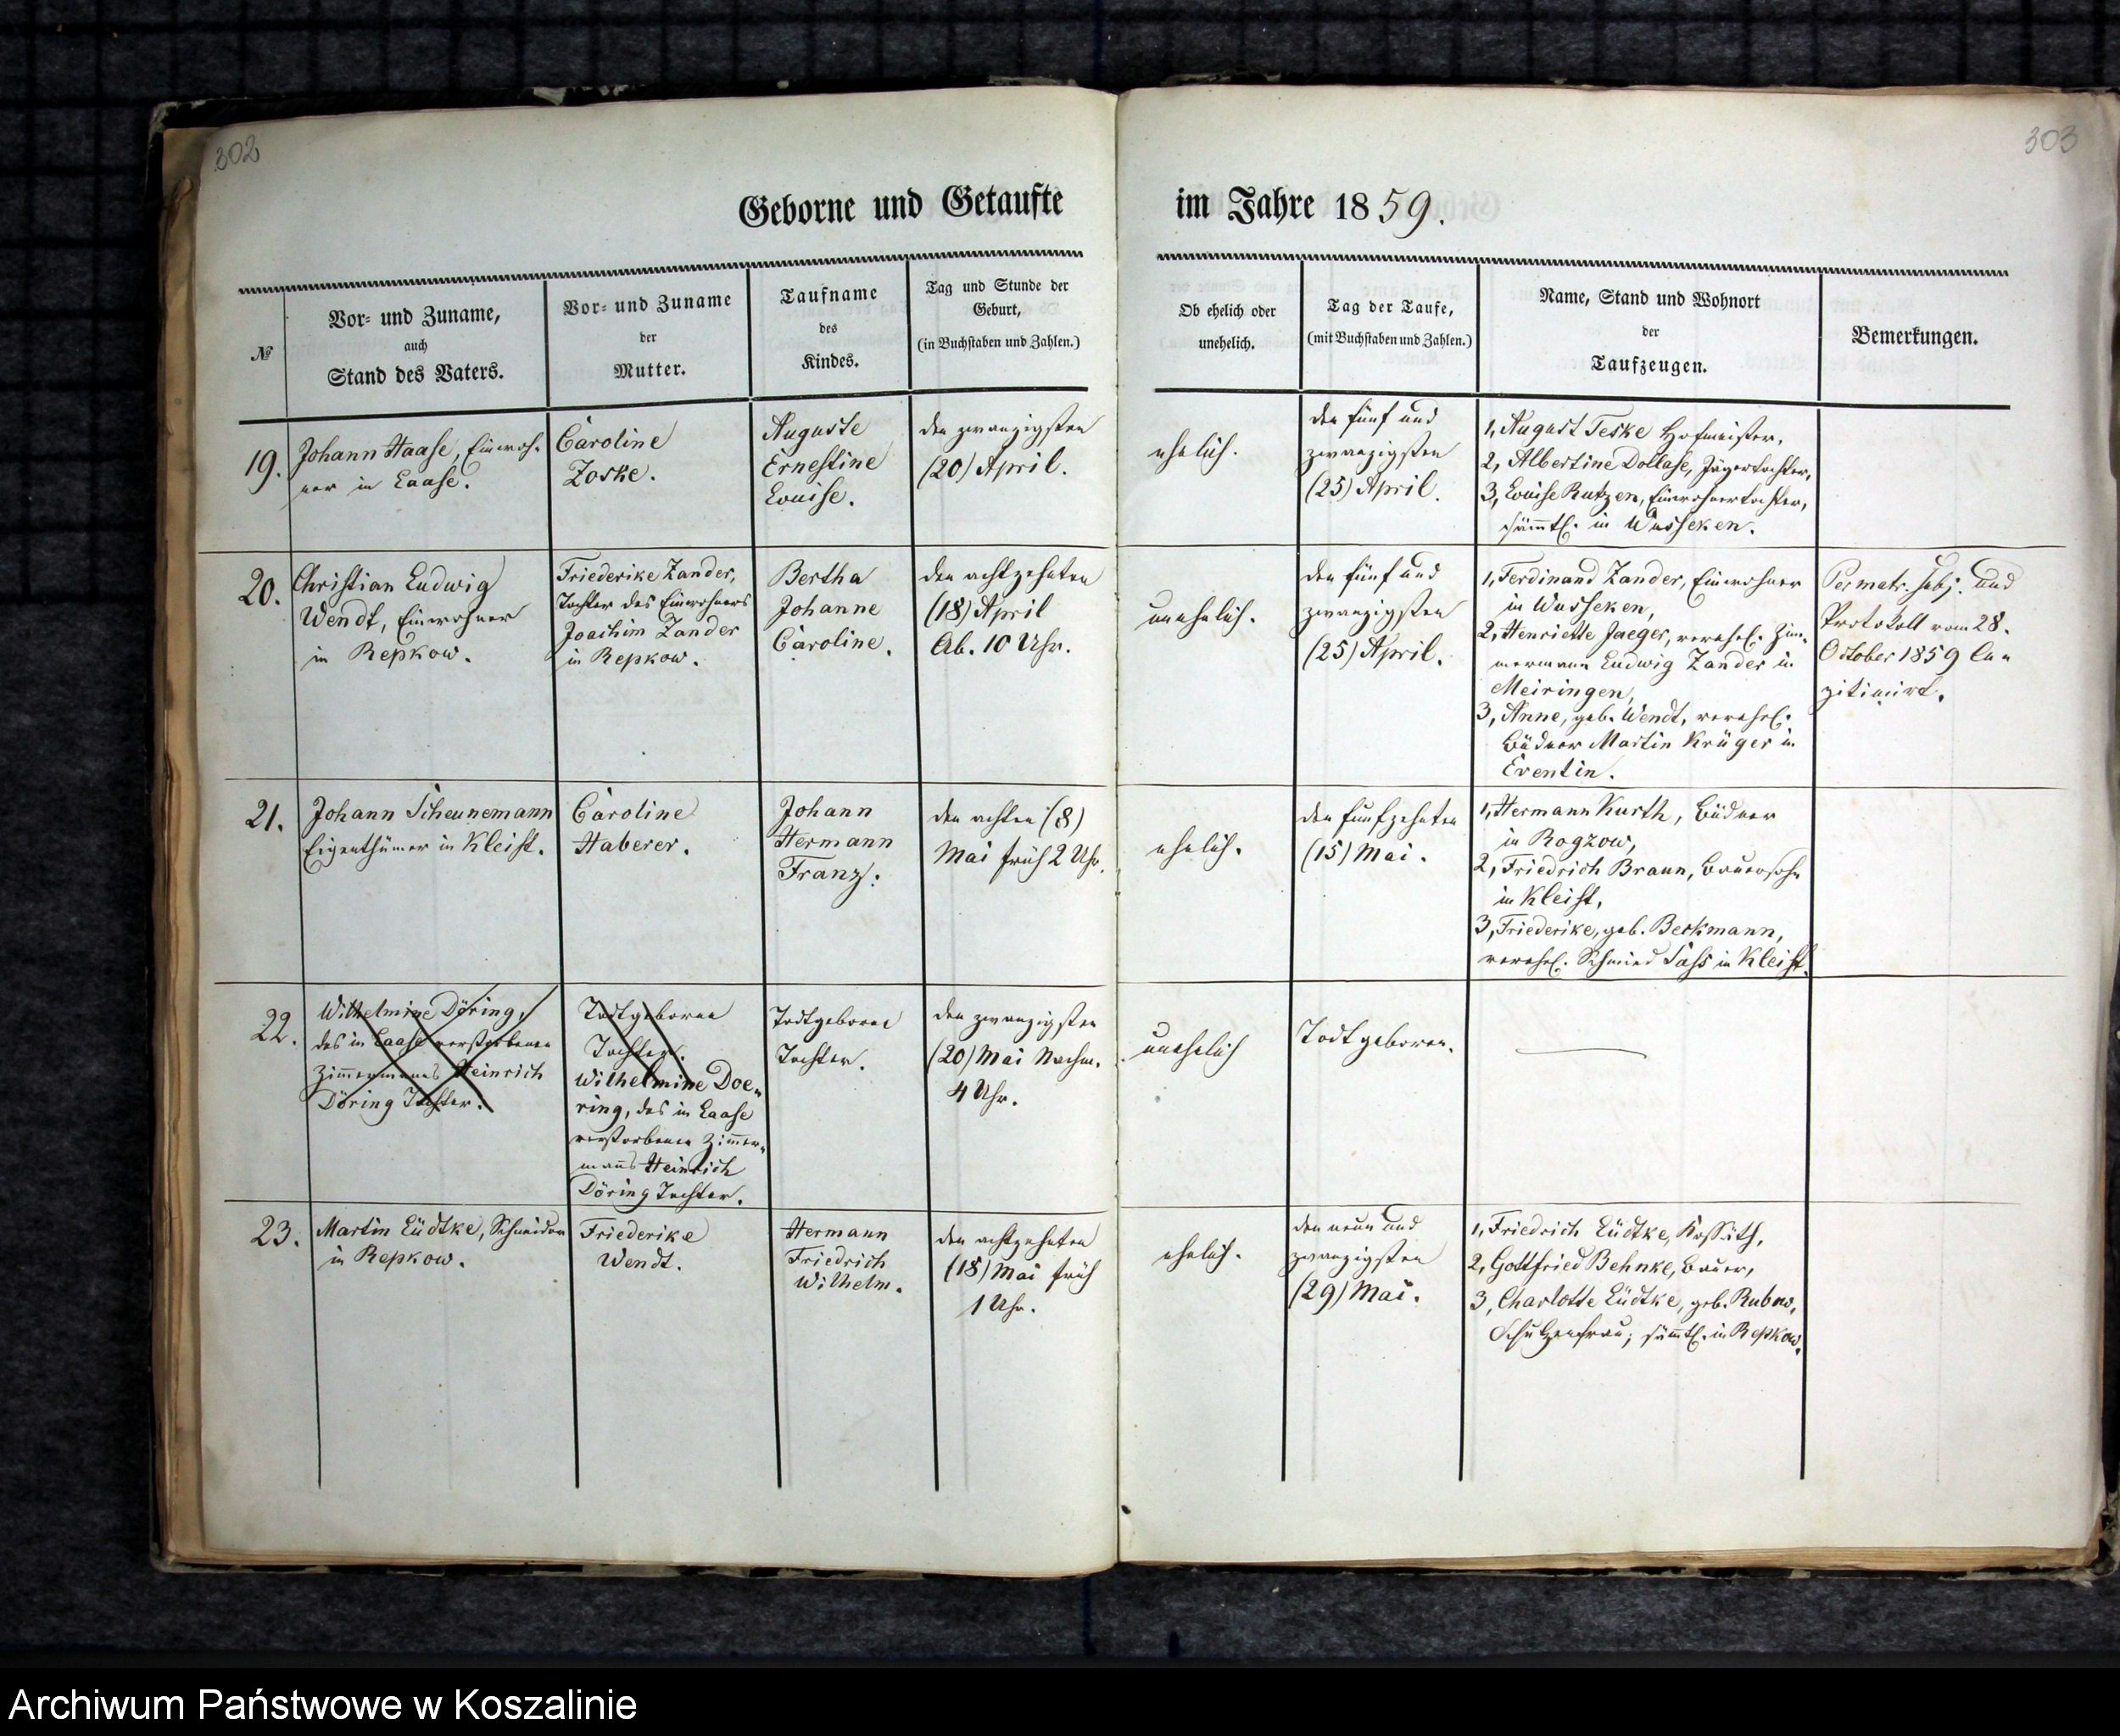 302
303
Geborne und Getaufte im Jahre 1859.
№
Vor- und Zuname,
auch
Stand des Vaters.
Vor- und Zuname
der
Mutter.
Taufname
des
Kindes.
Tag und Stunde der
Geburt,
(in Buchstaben und Zahlen.)
Ob ehelich oder
unehelich.
Tag der Taufe,
(mit Buchstaben und Zahlen.)
Name, Stand und Wohnort
der
Taufzeugen.
Bemerkungen.
19.
Johann Haase, Einwoh-
ner in Laase.
Caroline
Zoske.
Auguste
Ernestine
Louise.
den zwanzigsten
(20) April.
ehelich.
den fünf und
zwanzigsten
(25) April.
1, August Teske Hofmeister,
2, Albertine Dollase, Jägertochter,
3, Louise Rutzen, Einwohnertochter,
sämtl. in Wusseken.
20.
Christian Ludwig
Wendt, Einwohner
in Repkow.
Friederike Zander,
Tochter des Einwohners
Joachim Zander
in Repkow.
Bertha
Johanne
Caroline.
den achtzehnten
(18) April
Ab. 10 Uhr.
unehelich.
den fünf und
zwanzigsten
(25) April.
1, Ferdinand Zander, Einwohner
in Wusseken,
2, Henriette Jaeger, verehel. Zim-
mermann Ludwig Zander in
Meiringen,
3, Anne, geb. Wendt, verehel.
Büdner Martin Krüger in
Eventin.
Per matr. subs. und
Protokoll vom 28.
October 1859 le-
gitimirt.
21.
Johann Scheunemann
Eigenthümer in Kleist.
Caroline
Haberer.
Johann
Hermann
Franz.
den achten (8)
Mai früh 2 Uhr.
ehelich.
den funfzehnten
(15) Mai.
1, Hermann Kurth, Büdner
in Rogzow,
2, Friedrich Braun, Bauersohn
in Kleist,
3, Friederike, geb. Beckmann,
verehel. Schmied Sass in Kleist.
22.
Wilhelmine Döring,
des in Laase verstorbenen
Zimmermanns Heinrich
Döring Tochter.
Todtgeborne
Tochter.
Wilhelmine Doe-
ring, des in Laase
verstorbenen Zimmer-
manns Heinrich
Döring Tochter.
Todtgeborne
Tochter.
den zwanzigsten
(20) Mai Nachm.
4 Uhr.
unehelich
Todtgeboren.
23.
Martin Lüdtke, Schneider
in Repkow.
Friederike
Wendt.
Hermann
Friedrich
Wilhelm.
den achtzehnten
(18) Mai früh
1 Uhr.
ehelich.
den neun und
zwanzigsten
(29) Mai.
1, Friedrich Lüdtke, Kossäth,
2, Gottfried Behnke, Bauer,
3, Charlotte Lüdtke, geb. Rubow,
Schulzenfrau, sämtl. in Repkow.
Archiwum Państwowe w Koszalinie